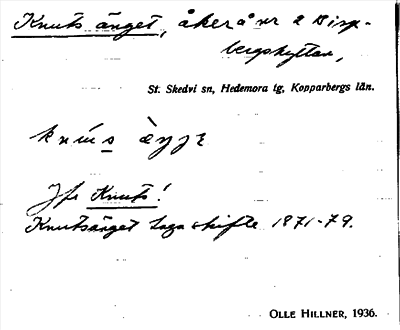 Knuts änget, åker å nr 2 Disp-
bergshyttan,
St. Skedvi sn, Hedemora tg, Kopparbergs län.
Jfr Knuts!
Knutsänget Laga skifte 1871-79.
OLLE HILLNER, 1936.